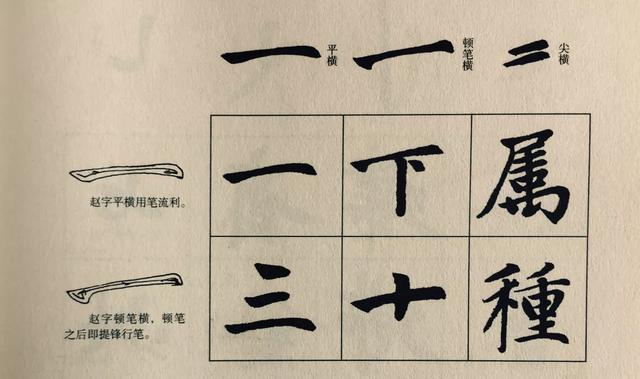 平横
顿笔横
尖横
赵字平横用笔流利。
一
下
属
赵字顿笔横，顿笔
之后即提锋行笔。
三
十
種